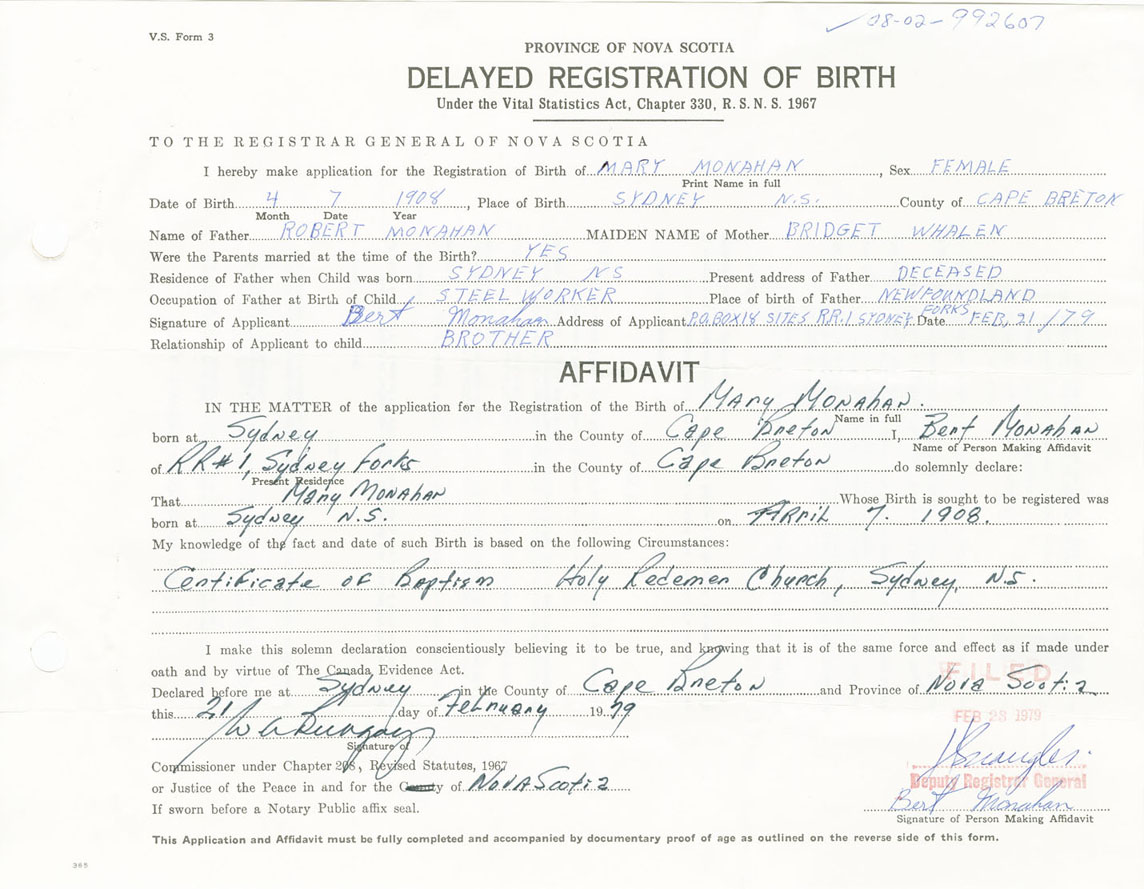 08-02-992607
V.S. Form 3
PROVINCE OF NOVA SCOTIA
DELAYED REGISTRATION OF BIRTH
Under the Vital Statistics Act, Chapter 330, R.S.N.S. 1967
TO THE REGISTRAR GENERAL OF NOVA SCOTIA
I hereby make application for the Registration of Birth of MARY MONAHAN, Sex FEMALE
Print Name in full
Date of Birth 4 7 1908, Place of Birth SYDNEY N.S. County of CAPE BRETON
Month Date Year
Name of Father ROBERT MONAHAN MAIDEN NAME of Mother BRIDGET WHALEN
Were the Parents married at the time of the Birth? YES
Residence of Father when Child was born SYDNEY NS Present address of Father DECEASED
Occupation of Father at Birth of Child STEEL WORKER Place of birth of Father NEWFOUNDLAND
Signature of Applicant Bert Monahan Address of Applicant P.O. BOX 18 SITE 5 RR.1 SYDNEY FORKS Date FEB, 21/79
Relationship of Applicant to child BROTHER
AFFIDAVIT
IN THE MATTER of the application for the Registration of the Birth of Mary Monahan.
Name in full
born at Sydney in the County of Cape Breton I, Bert Monahan
Name of Person Making Affidavit
of RR#1, Sydney Forks in the County of Cape Breton do solemnly declare:
Present Residence
That Mary Monahan Whose Birth is sought to be registered was
born at Sydney N.S. on April 7. 1908.
My knowledge of the fact and date of such Birth is based on the following Circumstances:
Certificate of Baptism Holy Redemer Church, Sydney, N.S.
I make this solemn declaration conscientiously believing it to be true, and knowing that it is of the same force and effect as if made under
oath and by virtue of The Canada Evidence Act.
FILED
Declared before me at Sydney in the County of Cape Breton and Province of Nova Scotia
this 21 day of February 19 79
FEB 28 1979
Signature of
Commissioner under Chapter 208, Revised Statutes, 1967
Deputy Registrar General
or Justice of the Peace in and for the County of Nova Scotia
Bert Monahan
If sworn before a Notary Public affix seal.
Signature of Person Making Affidavit
This Application and Affidavit must be fully completed and accompanied by documentary proof of age as outlined on the reverse side of this form.
365